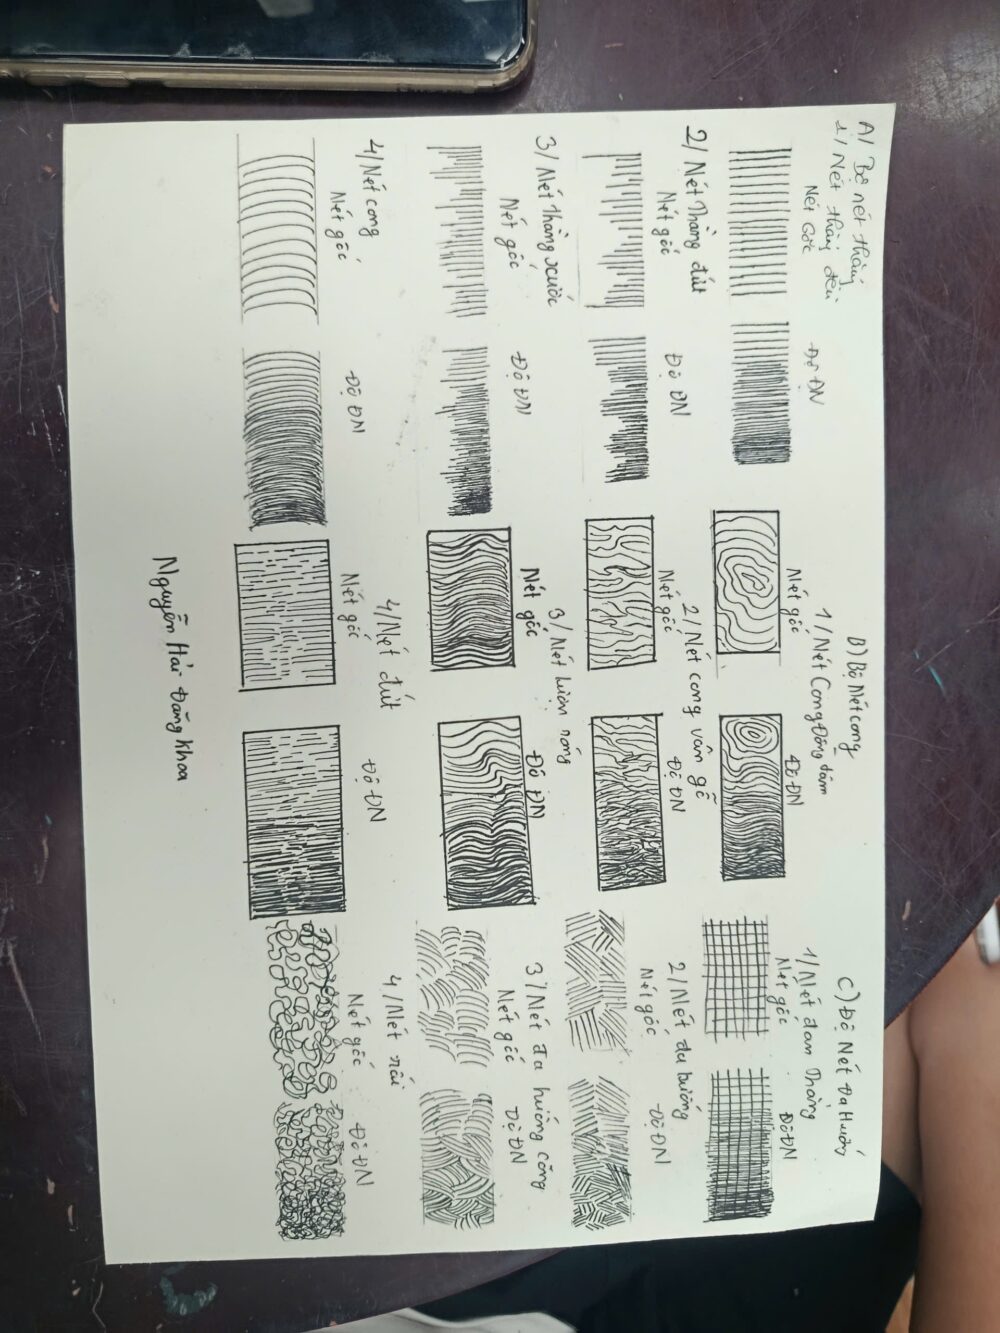 A/ Bộ nét thẳng
1/ Nét thẳng đều
Nét Gốc
Độ ĐN
2/ Nét Thẳng đứt
Nét gốc
Độ ĐN
3/ Nét thẳng xước
Nét gốc
Độ ĐN
4/ Nét cong
Nét gốc
Độ ĐN
B) Bộ Nét cong
1/ Nét Cong Đồng tâm
Nét gốc
Độ ĐN
2/ Nét cong vân gỗ
Nét gốc
Độ ĐN
3/ Nét lượn sóng
Nét gốc
Độ ĐN
4/ Nét đứt
Nét gốc
Độ ĐN
C) Bộ Nét Đa Hướng
1/ Nét đan Thẳng
Nét gốc
Độ ĐN
2/ Nét đa hướng
Nét gốc
Độ ĐN
3/ Nét đa hướng cong
Nét gốc
Độ ĐN
4/ Nét rối
Nét gốc
Độ ĐN
Nguyễn Hải Đăng Khoa